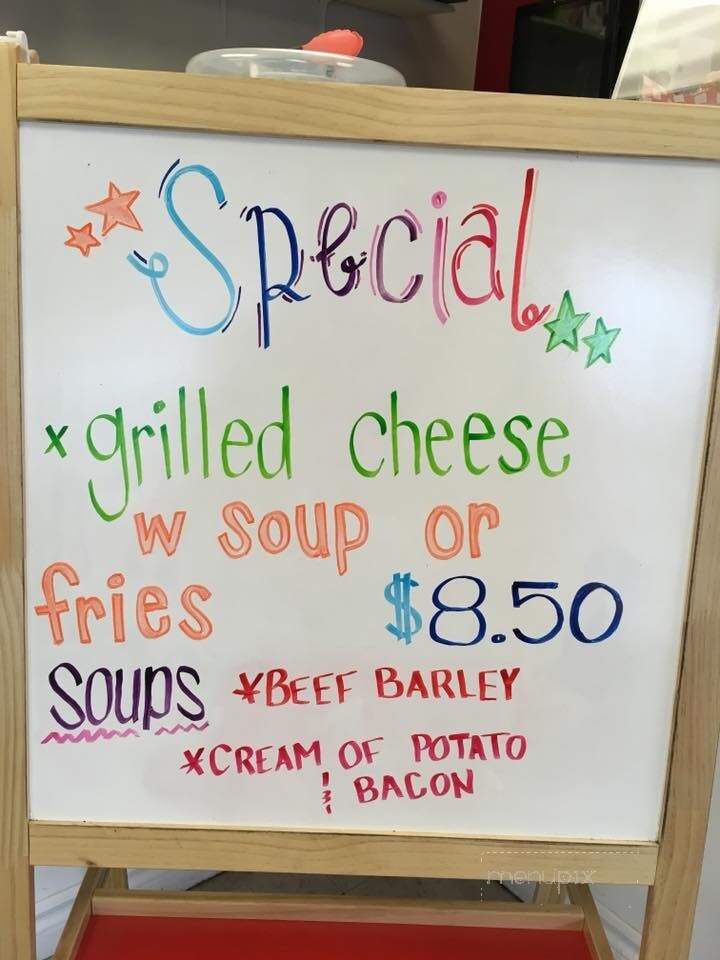 Special
* grilled cheese
w soup or
fries $8.50
Soups *BEEF BARLEY
*CREAM OF POTATO
& BACON
menupix